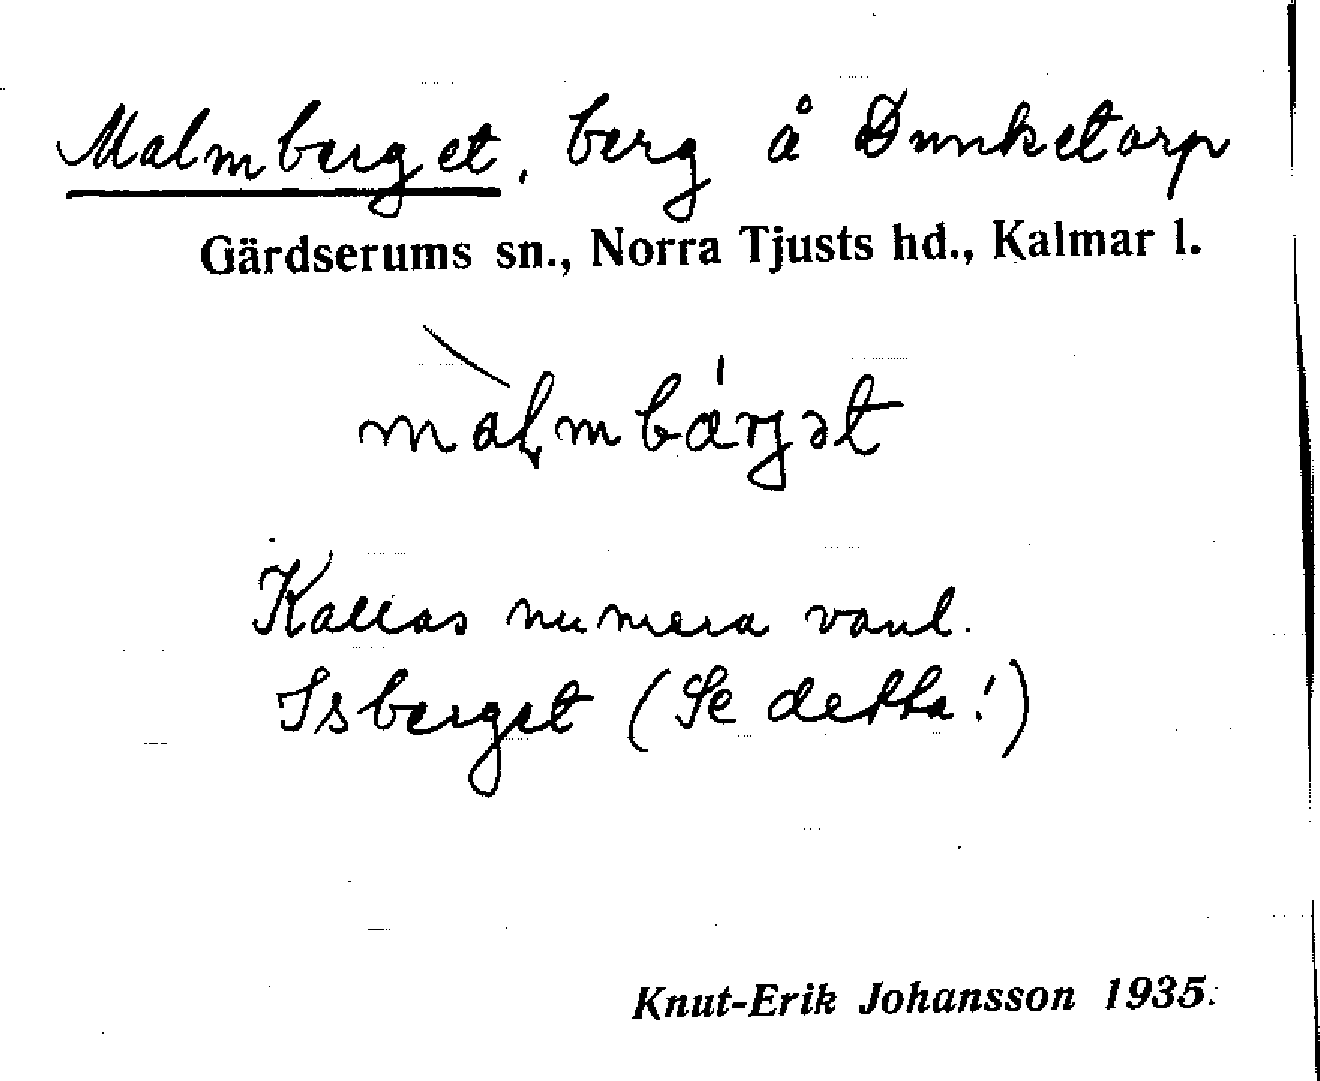 Malmberget, berg å Dunketorp
Gärdserums sn., Norra Tjusts hd., Kalmar l.
màlmbárjət
Kallas numera vanl.
Isberget (Se detta!)
Knut-Erik Johansson 1935.